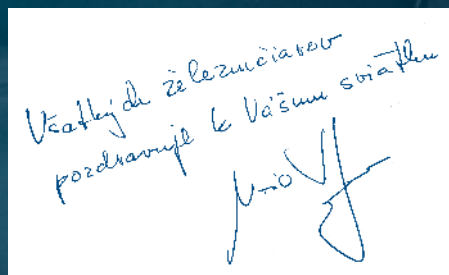 Všetkých železničiarov
pozdravuje k Vášmu sviatku